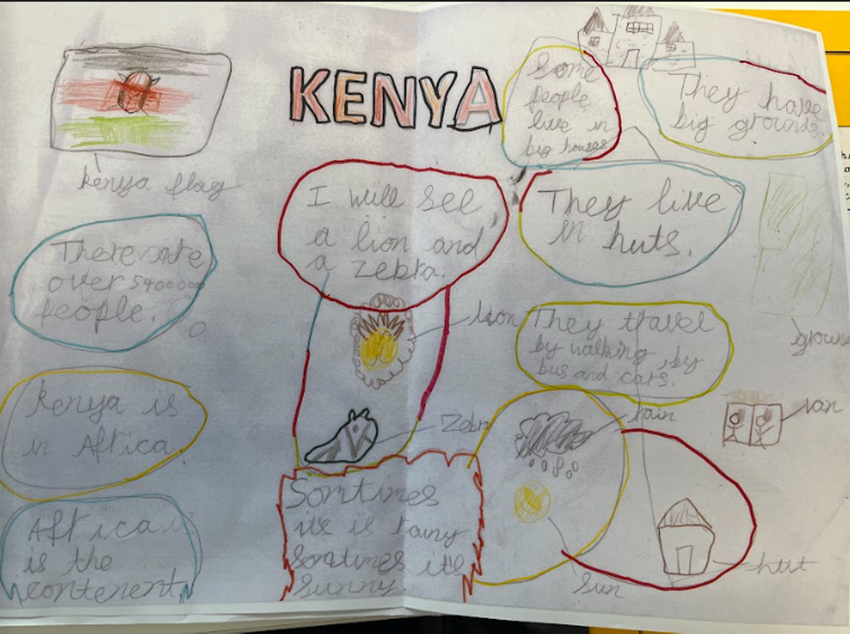 KENYA
kenya flag
There are
over 5400000
people.
Kenya is
in Africa
Africa
is the
contenent.
I will see
a lion and
a zebra.
lion
Zebr
Somtimes
it is rainy
Somtimes it's
Sunny
Some
people
live in
big houses
They have
big grounds
They live
in huts.
groun
They travel
by walking, by
bus and cars.
rain
van
Sun
hut